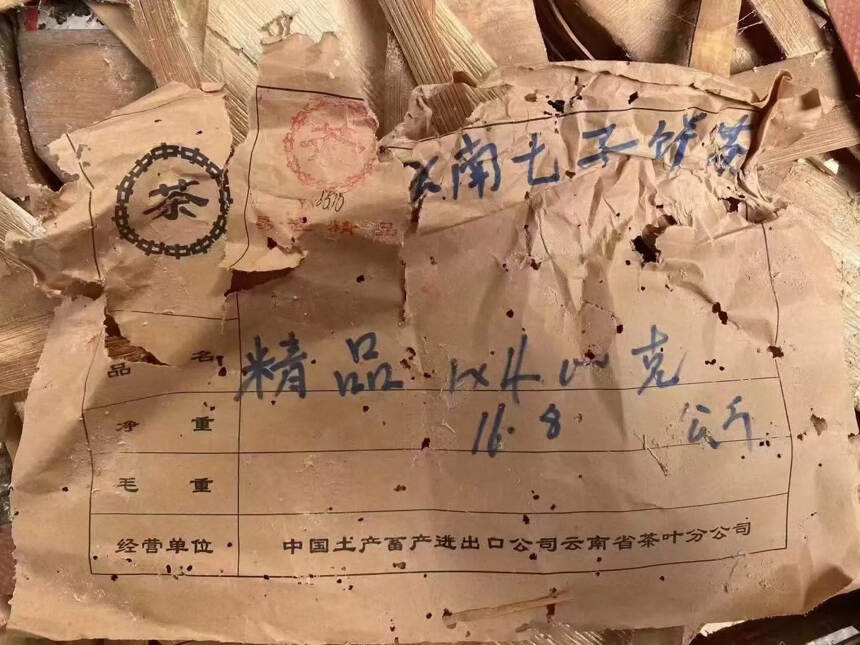 茶
云南七子饼茶
精品
品名 精品 1×400克
净重 16.8 公斤
毛重
经营单位 中国土产畜产进出口公司云南省茶叶分公司